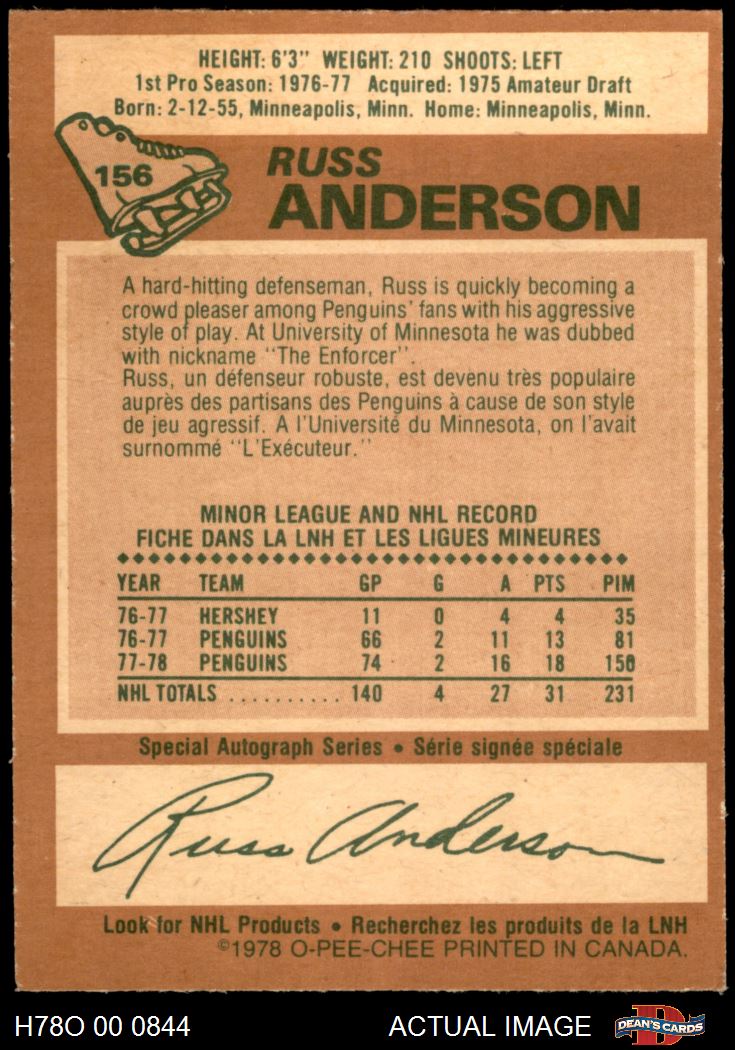 HEIGHT: 6'3" WEIGHT: 210 SHOOTS: LEFT
1st Pro Season: 1976-77 Acquired: 1975 Amateur Draft
Born: 2-12-55, Minneapolis, Minn. Home: Minneapolis, Minn.
156
RUSS
ANDERSON
A hard-hitting defenseman, Russ is quickly becoming a
crowd pleaser among Penguins' fans with his aggressive
style of play. At University of Minnesota he was dubbed
with nickname "The Enforcer".
Russ, un défenseur robuste, est devenu très populaire
auprès des partisans des Penguins à cause de son style
de jeu agressif. A l'Université du Minnesota, on l'avait
surnommé "L'Exécuteur."
MINOR LEAGUE AND NHL RECORD
FICHE DANS LA LNH ET LES LIGUES MINEURES
YEAR TEAM GP G A PTS PIM
76-77 HERSHEY 11 0 4 4 35
76-77 PENGUINS 66 2 11 13 81
77-78 PENGUINS 74 2 16 18 150
NHL TOTALS .......... 140 4 27 31 231
Special Autograph Series • Série signée spéciale
Russ Anderson
Look for NHL Products • Recherchez les produits de la LNH
©1978 O-PEE-CHEE PRINTED IN CANADA.
H78O 00 0844 ACTUAL IMAGE DEAN'S CARDS